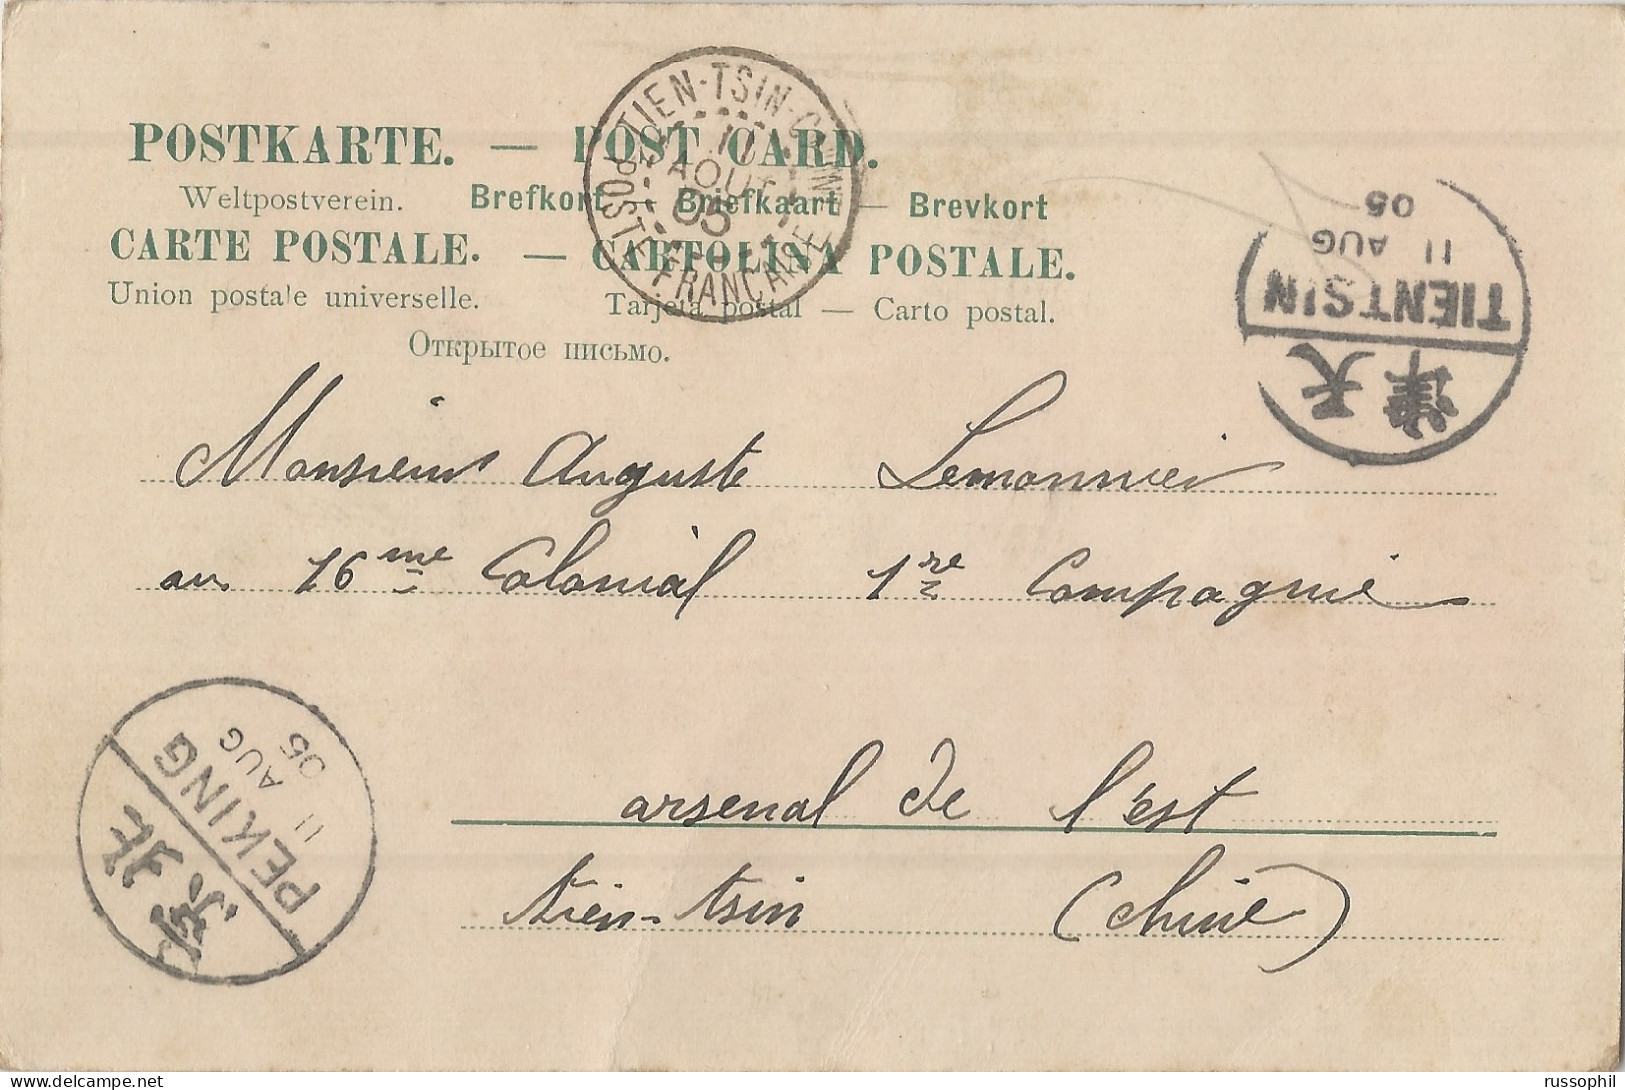 POSTKARTE. — POST CARD.
Weltpostverein. Brefkort — Briefkaart — Brevkort
CARTE POSTALE. — CARTOLINA POSTALE.
Union postale universelle. Tarjeta postal — Carto postal.
Открытое письмо.
TIEN-TSIN-CHINE
11
AOUT
05
POSTE FRANÇAISE
天津
TIENTSIN
11
AUG
05
Monsieur Auguste Lemonnier
au 16me Colonial 1re Compagnie
arsenal de l'est
tien-tsin (chine)
北京
PEKING
11
AUG
05
delcampe.net
russophil